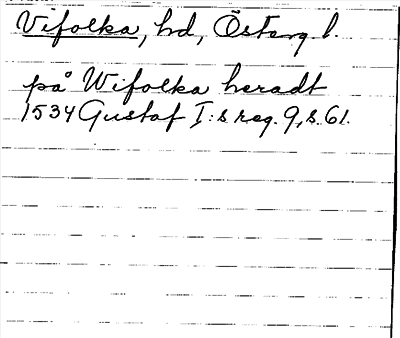 Vifolka, hd, Österg l.
på Wifolka heradt
1534 Gustaf I:s reg. 9, s. 61.